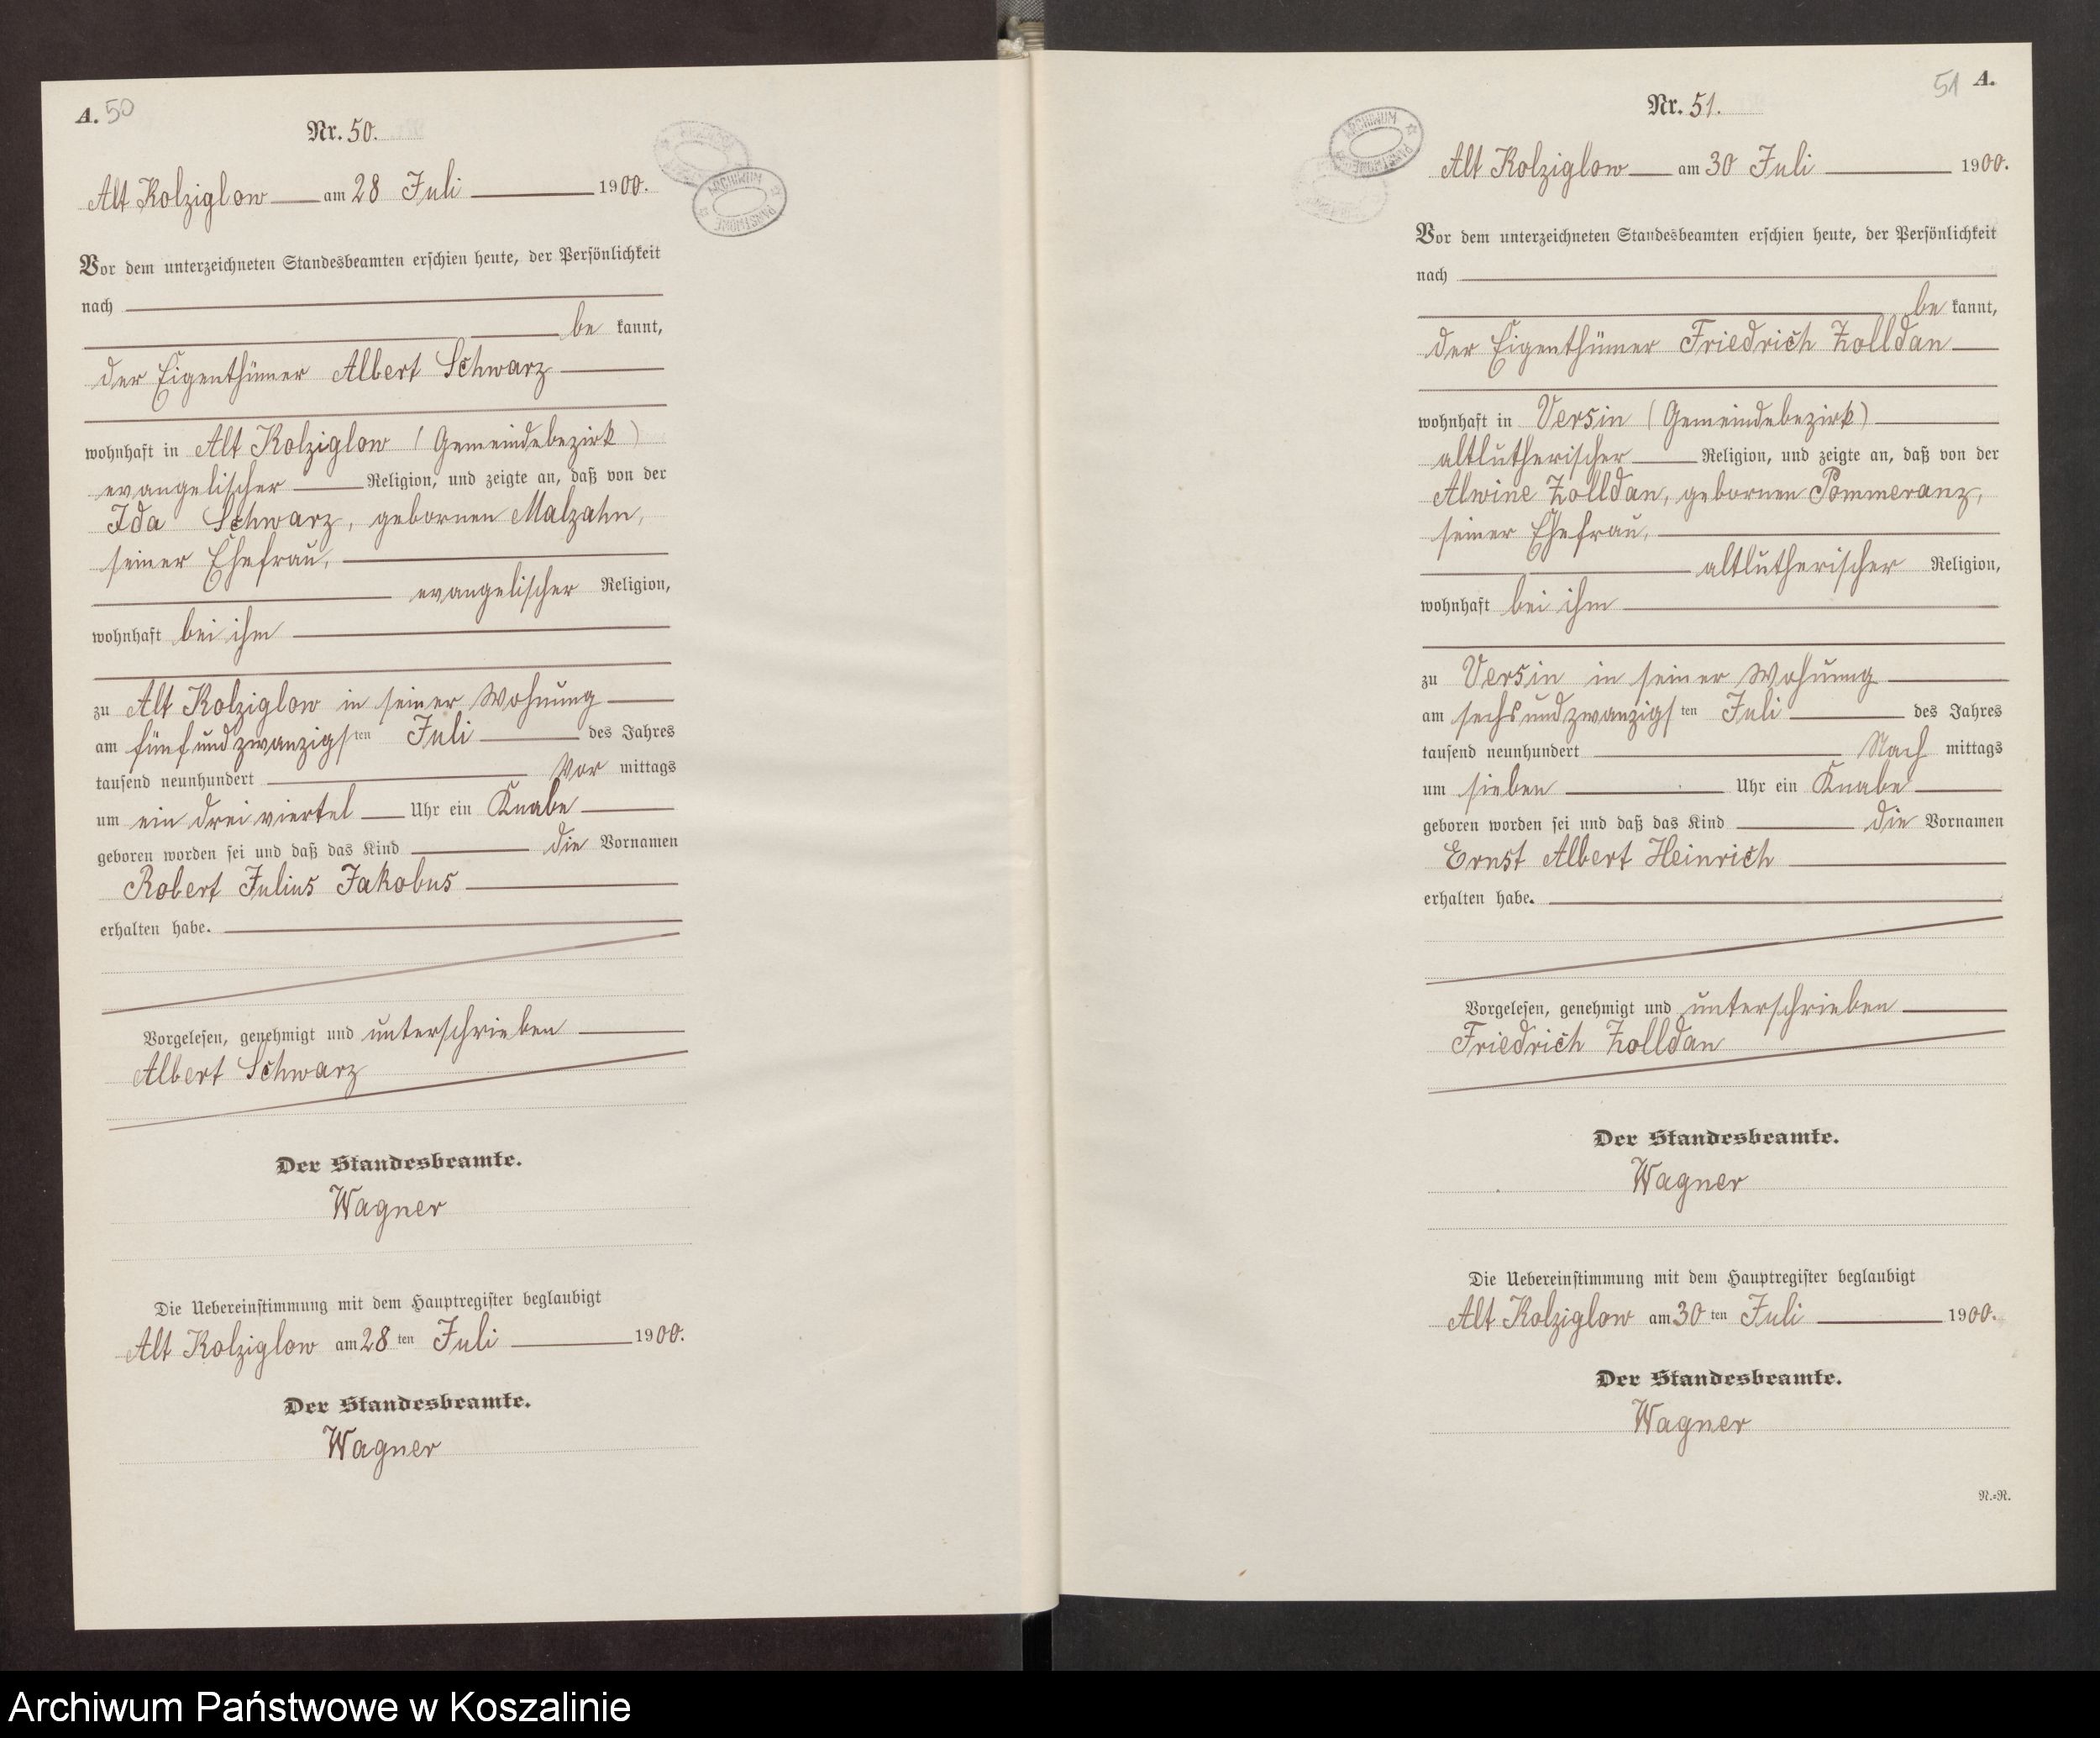 A. 50
Nr. 50.
Alt Kolziglow am 28 Juli 1900.
ARCHIWUM PAŃSTWOWE
Vor dem unterzeichneten Standesbeamten erschien heute, der Persönlichkeit
nach
be kannt,
der Eigenthümer Albert Schwarz
wohnhaft in Alt Kolziglow (Gemeindebezirk)
evangelischer Religion, und zeigte an, daß von der
Ida Schwarz, gebornen Malzahn,
seiner Ehefrau,
evangelischer Religion,
wohnhaft bei ihm
zu Alt Kolziglow in seiner Wohnung
am fünfundzwanzigsten Juli des Jahres
tausend neunhundert Vor mittags
um ein drei viertel Uhr ein Knabe
geboren worden sei und daß das Kind die Vornamen
Robert Julius Jakobus
erhalten habe.
Vorgelesen, genehmigt und unterschrieben
Albert Schwarz
Der Standesbeamte.
Wagner
Die Uebereinstimmung mit dem Hauptregister beglaubigt
Alt Kolziglow am 28 ten Juli 1900.
Der Standesbeamte.
Wagner
51 A.
Nr. 51.
ARCHIWUM PAŃSTWOWE
Alt Kolziglow am 30 Juli 1900.
Vor dem unterzeichneten Standesbeamten erschien heute, der Persönlichkeit
nach
be kannt,
der Eigenthümer Friedrich Zolldan
wohnhaft in Versin (Gemeindebezirk)
altlutherischer Religion, und zeigte an, daß von der
Alwine Zolldan, gebornen Pommeranz,
seiner Ehefrau,
altlutherischer Religion,
wohnhaft bei ihm
zu Versin in seiner Wohnung
am sechsundzwanzigsten Juli des Jahres
tausend neunhundert Nach mittags
um sieben Uhr ein Knabe
geboren worden sei und daß das Kind die Vornamen
Ernst Albert Heinrich
erhalten habe.
Vorgelesen, genehmigt und unterschrieben
Friedrich Zolldan
Der Standesbeamte.
Wagner
Die Uebereinstimmung mit dem Hauptregister beglaubigt
Alt Kolziglow am 30 ten Juli 1900.
Der Standesbeamte.
Wagner
N.=R.
Archiwum Państwowe w Koszalinie